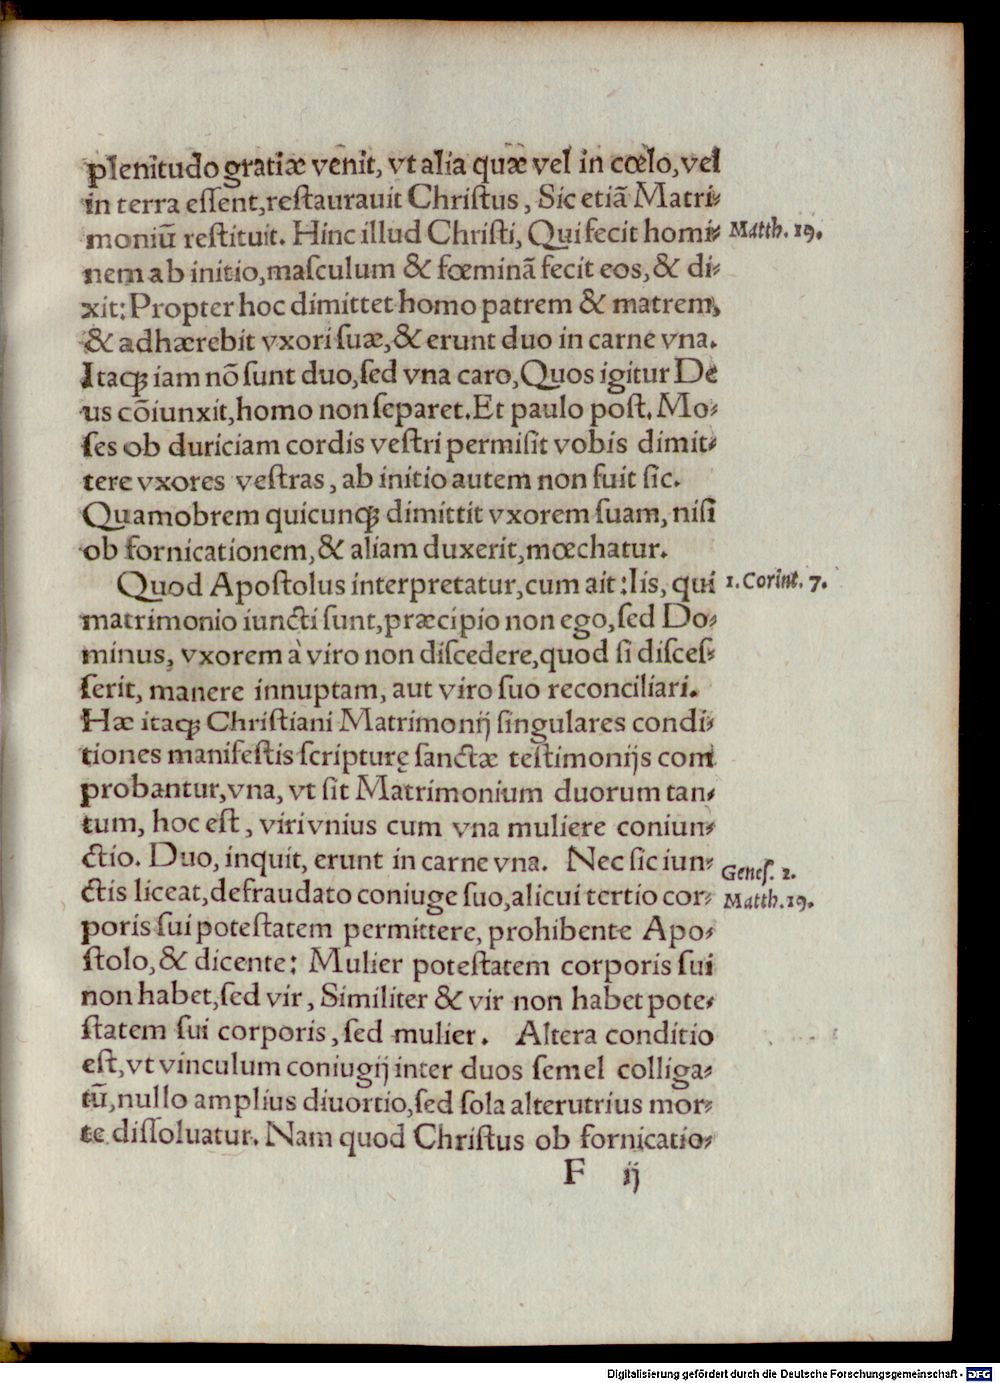 plenitudo gratiæ venit, vt alia quæ vel in cœlo, vel
in terra essent, restaurauit Christus, Sic etiã Matri-
moniũ restituit. Hinc illud Christi, Qui fecit homi- Matth. 19.
nem ab initio, masculum & fœminã fecit eos, & di-
xit: Propter hoc dimittet homo patrem & matrem,
& adhærebit vxori suæ, & erunt duo in carne vna.
Itaq; iam nõ sunt duo, sed vna caro, Quos igitur De
us cõiunxit, homo non separet. Et paulo post. Mo-
ses ob duriciam cordis vestri permisit vobis dimit-
tere vxores vestras, ab initio autem non fuit sic.
Quamobrem quicunq; dimittit vxorem suam, nisi
ob fornicationem, & aliam duxerit, mœchatur.
Quod Apostolus interpretatur, cum ait: Iis, qui 1. Corint. 7.
matrimonio iuncti sunt, præcipio non ego, sed Do-
minus, vxorem à viro non discedere, quod si disces-
serit, manere innuptam, aut viro suo reconciliari.
Hæ itaq; Christiani Matrimonij singulares condi-
tiones manifestis scripturę sanctæ testimonijs com
probantur, vna, vt sit Matrimonium duorum tan-
tum, hoc est, viri vnius cum vna muliere coniun-
ctio. Duo, inquit, erunt in carne vna. Nec sic iun- Genes. 2.
ctis liceat, defraudato coniuge suo, alicui tertio cor- Matth. 19.
poris sui potestatem permittere, prohibente Apo-
stolo, & dicente: Mulier potestatem corporis sui
non habet, sed vir, Similiter & vir non habet pote-
statem sui corporis, sed mulier. Altera conditio
est, vt vinculum coniugij inter duos semel colliga-
tũ, nullo amplius diuortio, sed sola alterutrius mor-
te dissoluatur. Nam quod Christus ob fornicatio-
F ij
Digitalisierung gefördert durch die Deutsche Forschungsgemeinschaft - DFG